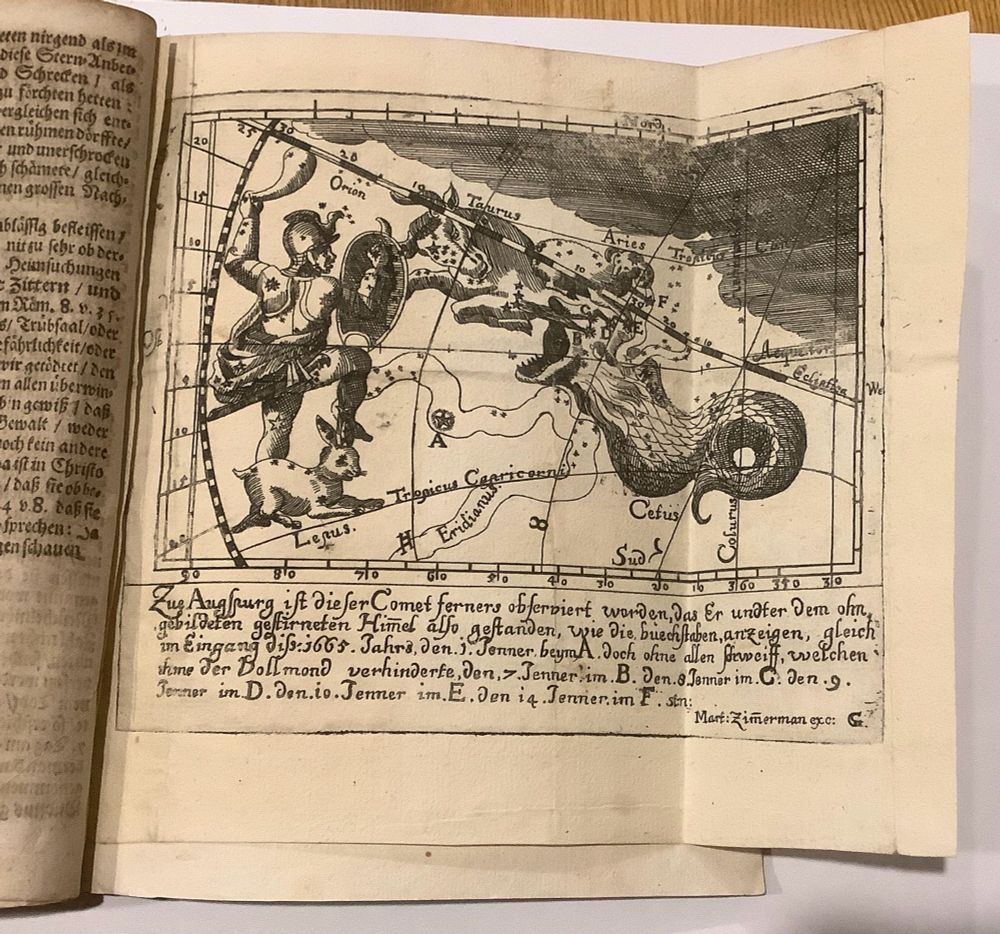 eten nirgend als im
diese Stern-Anbet-
d Schrecken / als
zu förchten hetten:
ergleichen sich ent-
en rühmen dörffte/
und unerschrocken
h schämete/ gleich-
nen grossen Nach-
nit zu sehr ob der-
Heimsuchungen
Zittern / und
m Röm. 8. v. 35.
s/ Trübsaal/oder
efährlichkeit/oder
wir getödtet / den
n allen überwin-
b'n gewiß / daß
Gewalt / weder
noch kein andere
da ist in Christo
/ daß sie ob be-
4 v. 8. daß sie
sprechen: Ja
gen schauen
Nord
25 30
20 20 10
Orion
Taurus
Aries Tropicus
15
10
10 30 F
C D E
B
20
10
Aequator
Ecliptica
We
10
A
10
15
Tropicus Capricorni
Lepus.
H Eridianus. 8
Cetus
Sud
Colurus
90 80 70 60 50 40 30 20 10 360 350 310
Zue Augspurg ist dieser Comet ferners observiert worden, das Er undter dem ohn,
gebildeten gestirneten Him̄el also gestanden, wie die buechstaben, anzeigen, gleich
im Eingang diss: 1665. Jahrs, den. 1. Jenner. beym A. doch ohne allen schweiff, welchen
ihme der Vollmond verhinderte, den, 7. Jenner: im. B. den. 8 Jenner im. C. den. 9.
Jenner im. D. den. 10. Jenner im. E. den 14. Jenner. im F. stn:
Mart: Zim̄erman exc: G.